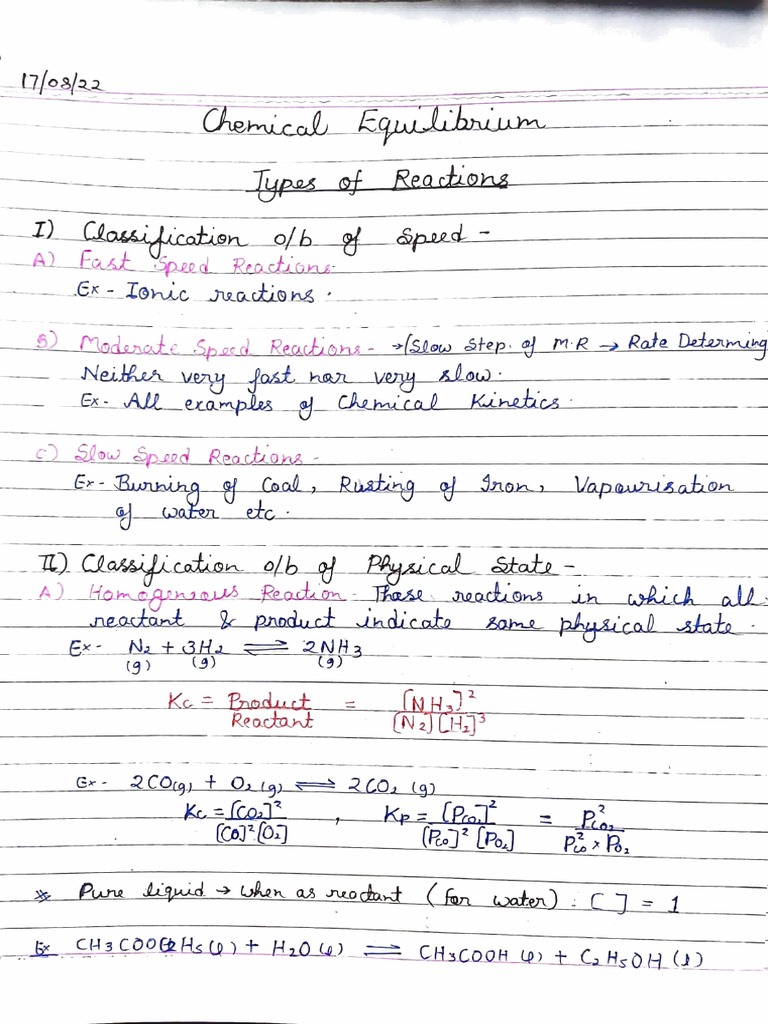 17/08/22
Chemical Equilibrium
Types of Reactions
I) Classification o/b of Speed -
A) Fast Speed Reactions-
Ex - Ionic reactions.
B) Moderate Speed Reactions - → (Slow Step. of M.R → Rate Determing
Neither very fast nor very slow.
Ex - All examples of Chemical Kinetics.
C) Slow Speed Reactions -
Ex - Burning of Coal, Rusting of Iron, Vapourisation
of water etc.
II) Classification o/b of Physical State -
A) Homogeneous Reaction - Those reactions in which all
reactant & product indicate same physical state.
Ex - N2 + 3H2 ⇌ 2NH3
(g) (g) (g)
Kc = Product = [NH3]²
Reactant [N2][H2]³
Ex - 2CO(g) + O2(g) ⇌ 2CO2(g)
Kc = [CO2]² , Kp = [PCO2]² = P²CO2
[CO]²[O2] [PCO]² [PO2] P²CO × PO2
* Pure liquid → when as reactant (for water) : [ ] = 1
Ex CH3COOC2H5(l) + H2O(l) ⇌ CH3COOH(l) + C2H5OH(l)